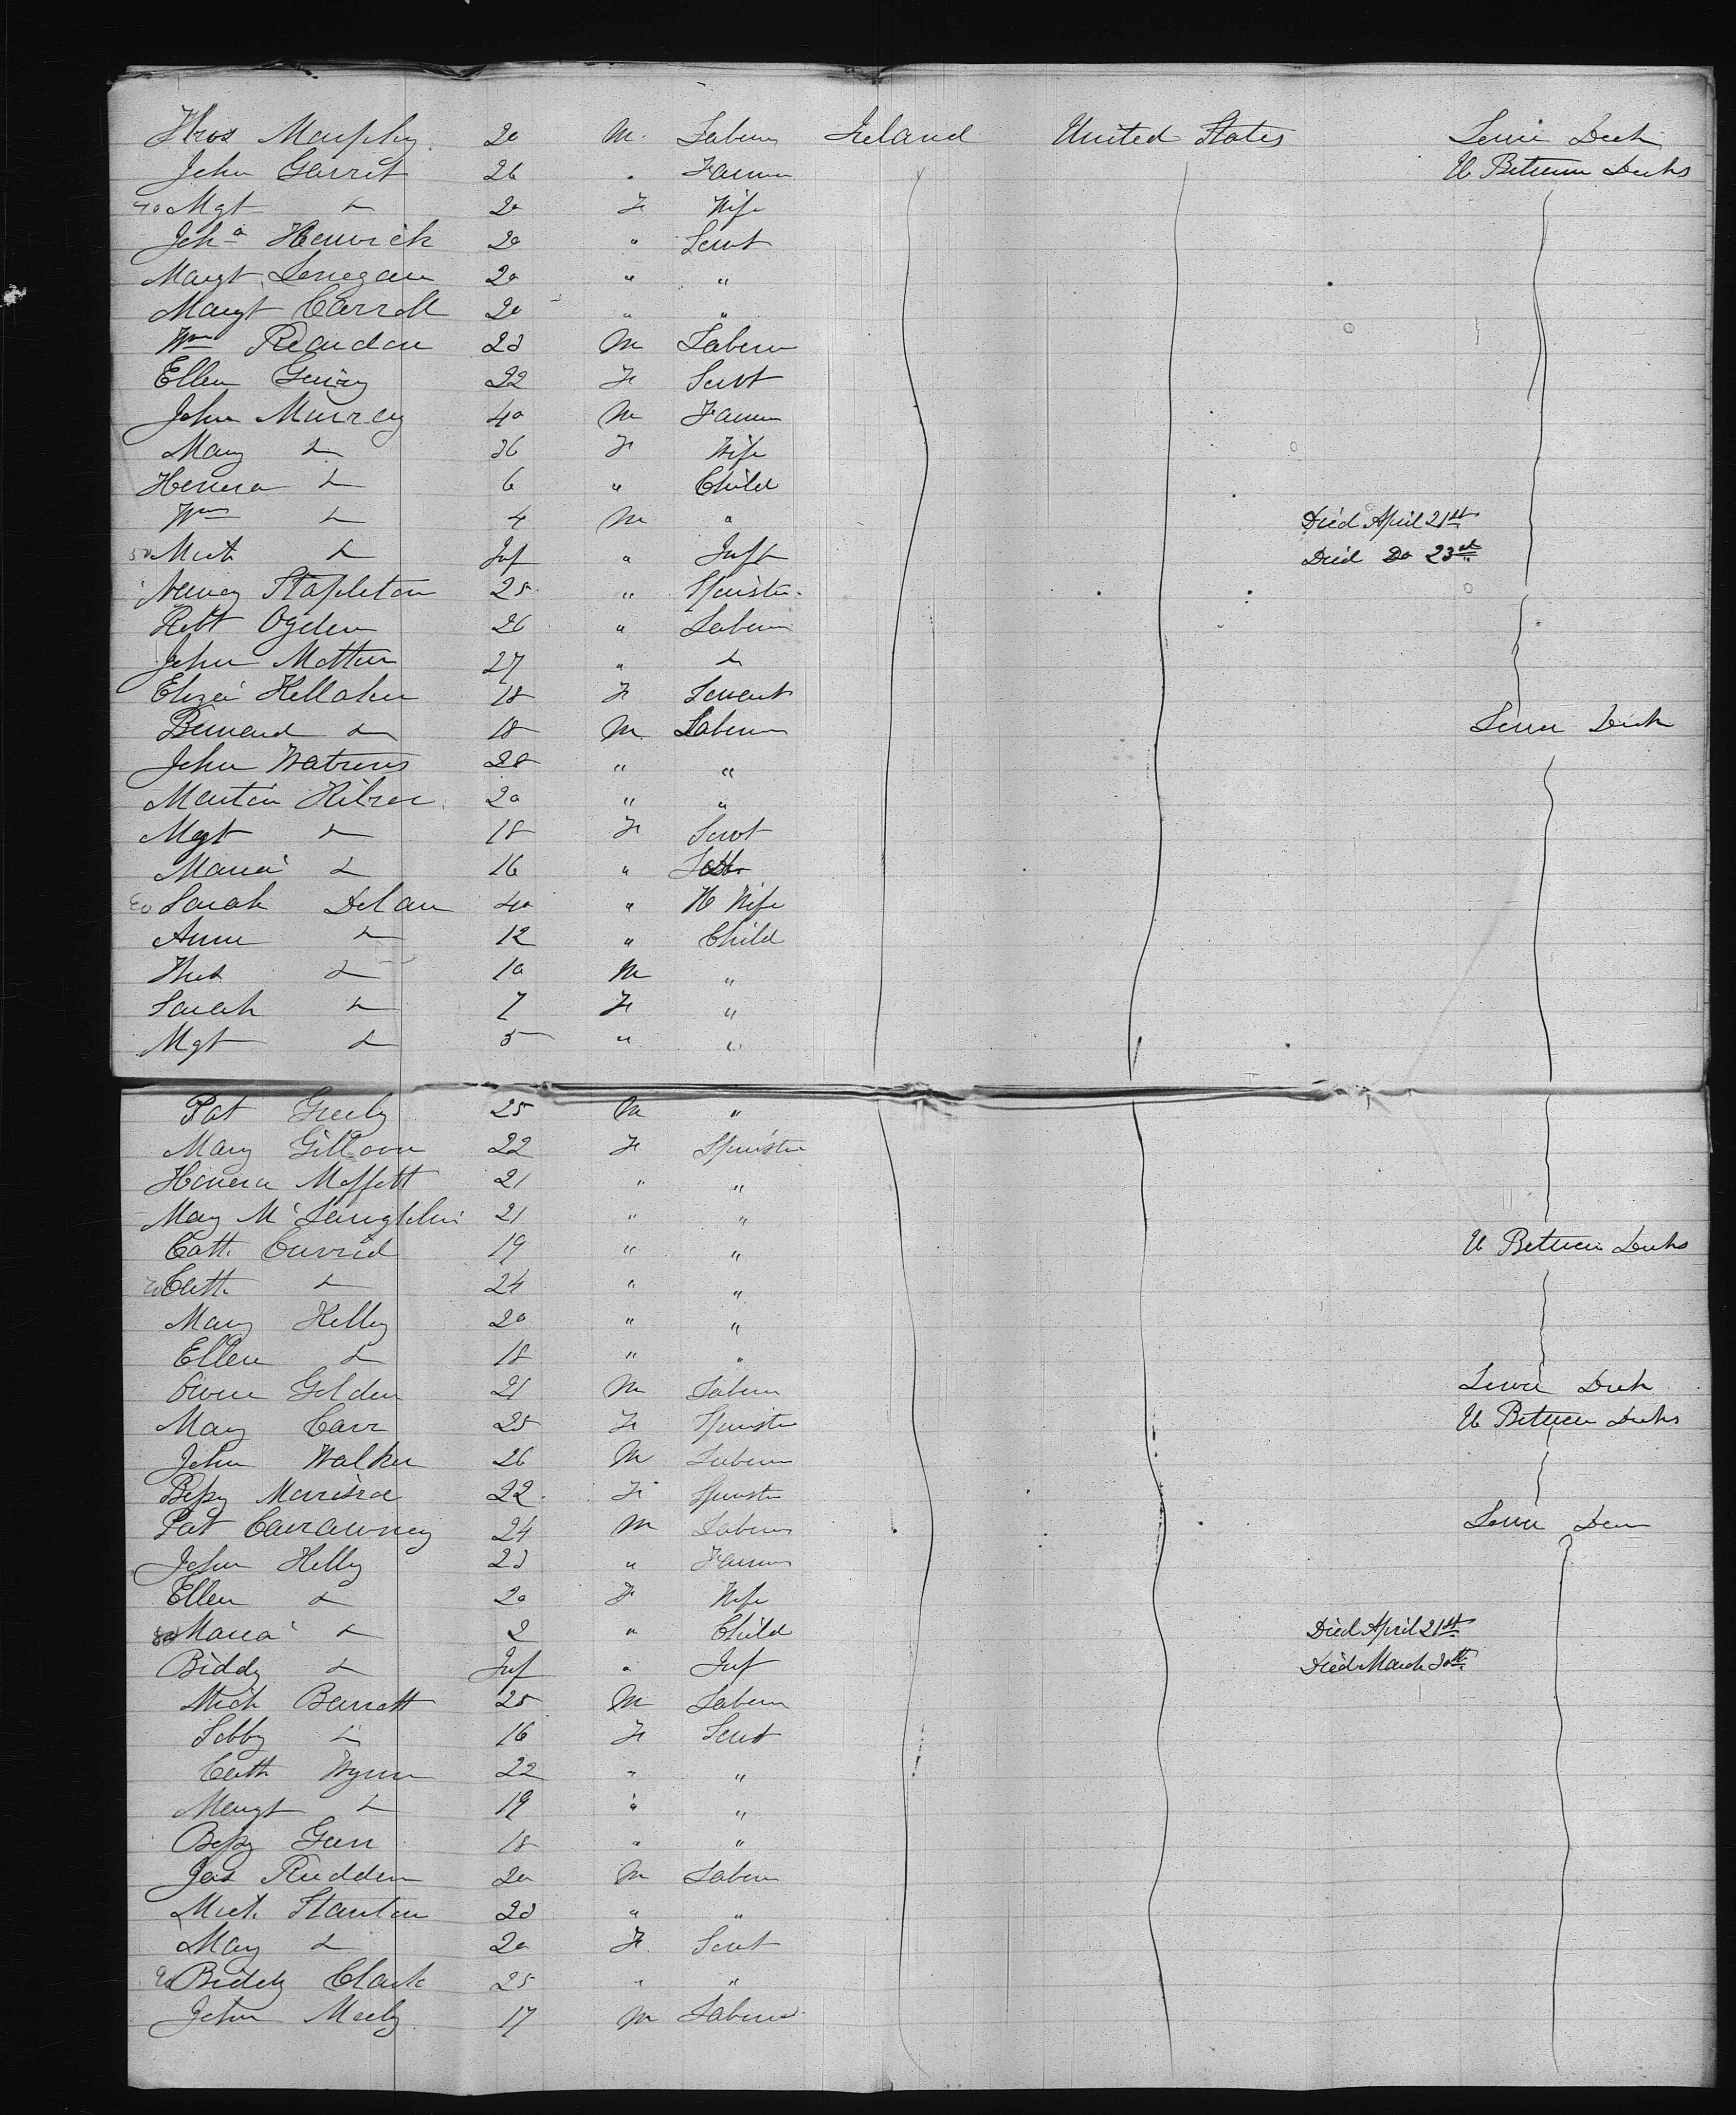 Thos Murphy 20 M. Laborer Ireland United States Lower Deck
John Garret 26 " Farmer U Between Decks
40 Mgt Do 20 F Wife
Joh a Henrick 20 " Servt
Margt Lenegan 20 " "
Margt Carroll 20 " "
Wm Reardon 23 M Laborer
Ellen 22 F Servt
John Murray 40 M Farmer
Mary Do 36 F Wife
Honera Do 6 " Child
Wm Do 4 M " Died April 21st
50 Mich Do Inf " Inft Died Do 23rd
Nancy Stapleton 25 " Spinster
Robt Ogden 26 " Laborer
John 27 " Do
Eliza Kellaher 18 F Servant
Bernard Do 18 M. Laborer Lower Deck
John Watrous 28 " "
Martin Kilroe 20 " "
Mgt Do 18 F Servt
Maria Do 16 "
60 Sarah Delan 40 " H Wife
Anne Do 12 " Child
Do 10 M "
Sarah Do 7 F "
Mgt Do 5 " "
Pat Greely 25 M "
Mary Gilloon 22 F Spinster
Honera Moffett 21 " "
Mary Mc Laughlin 21 " "
Cath. Curred 19 " " U Between Decks
70 Cath. Do 24 " "
Mary Kelly 20 " "
Ellen Do 18 " "
Owen Golden 21 M Laborer Lower Deck
Mary Carr 25 F Spinster U Between Decks
John Walker 26 M Laborer
Bessy Morrisroe 22 F Spinster
Pat Carrawney 24 M Laborer Lower Deck
John Kelly 23 " Farmer
Ellen Do 20 F Wife
80 Maria Do 2 " Child Died April 21st
Biddy Do Inf " Inf Died March 30th
Mich Barrett 25 M Laborer
Sebby Do 16 F Servt
Cath Wynn 22 " "
Margt Do 19 " "
Bessy Gan 18 " "
Jas Rudden 20 M Laborer
Mich. Stanton 23 " "
Mary Do 20 F. Servt
90 Biddy Clark 25 " "
John Meely 17 M Laborer